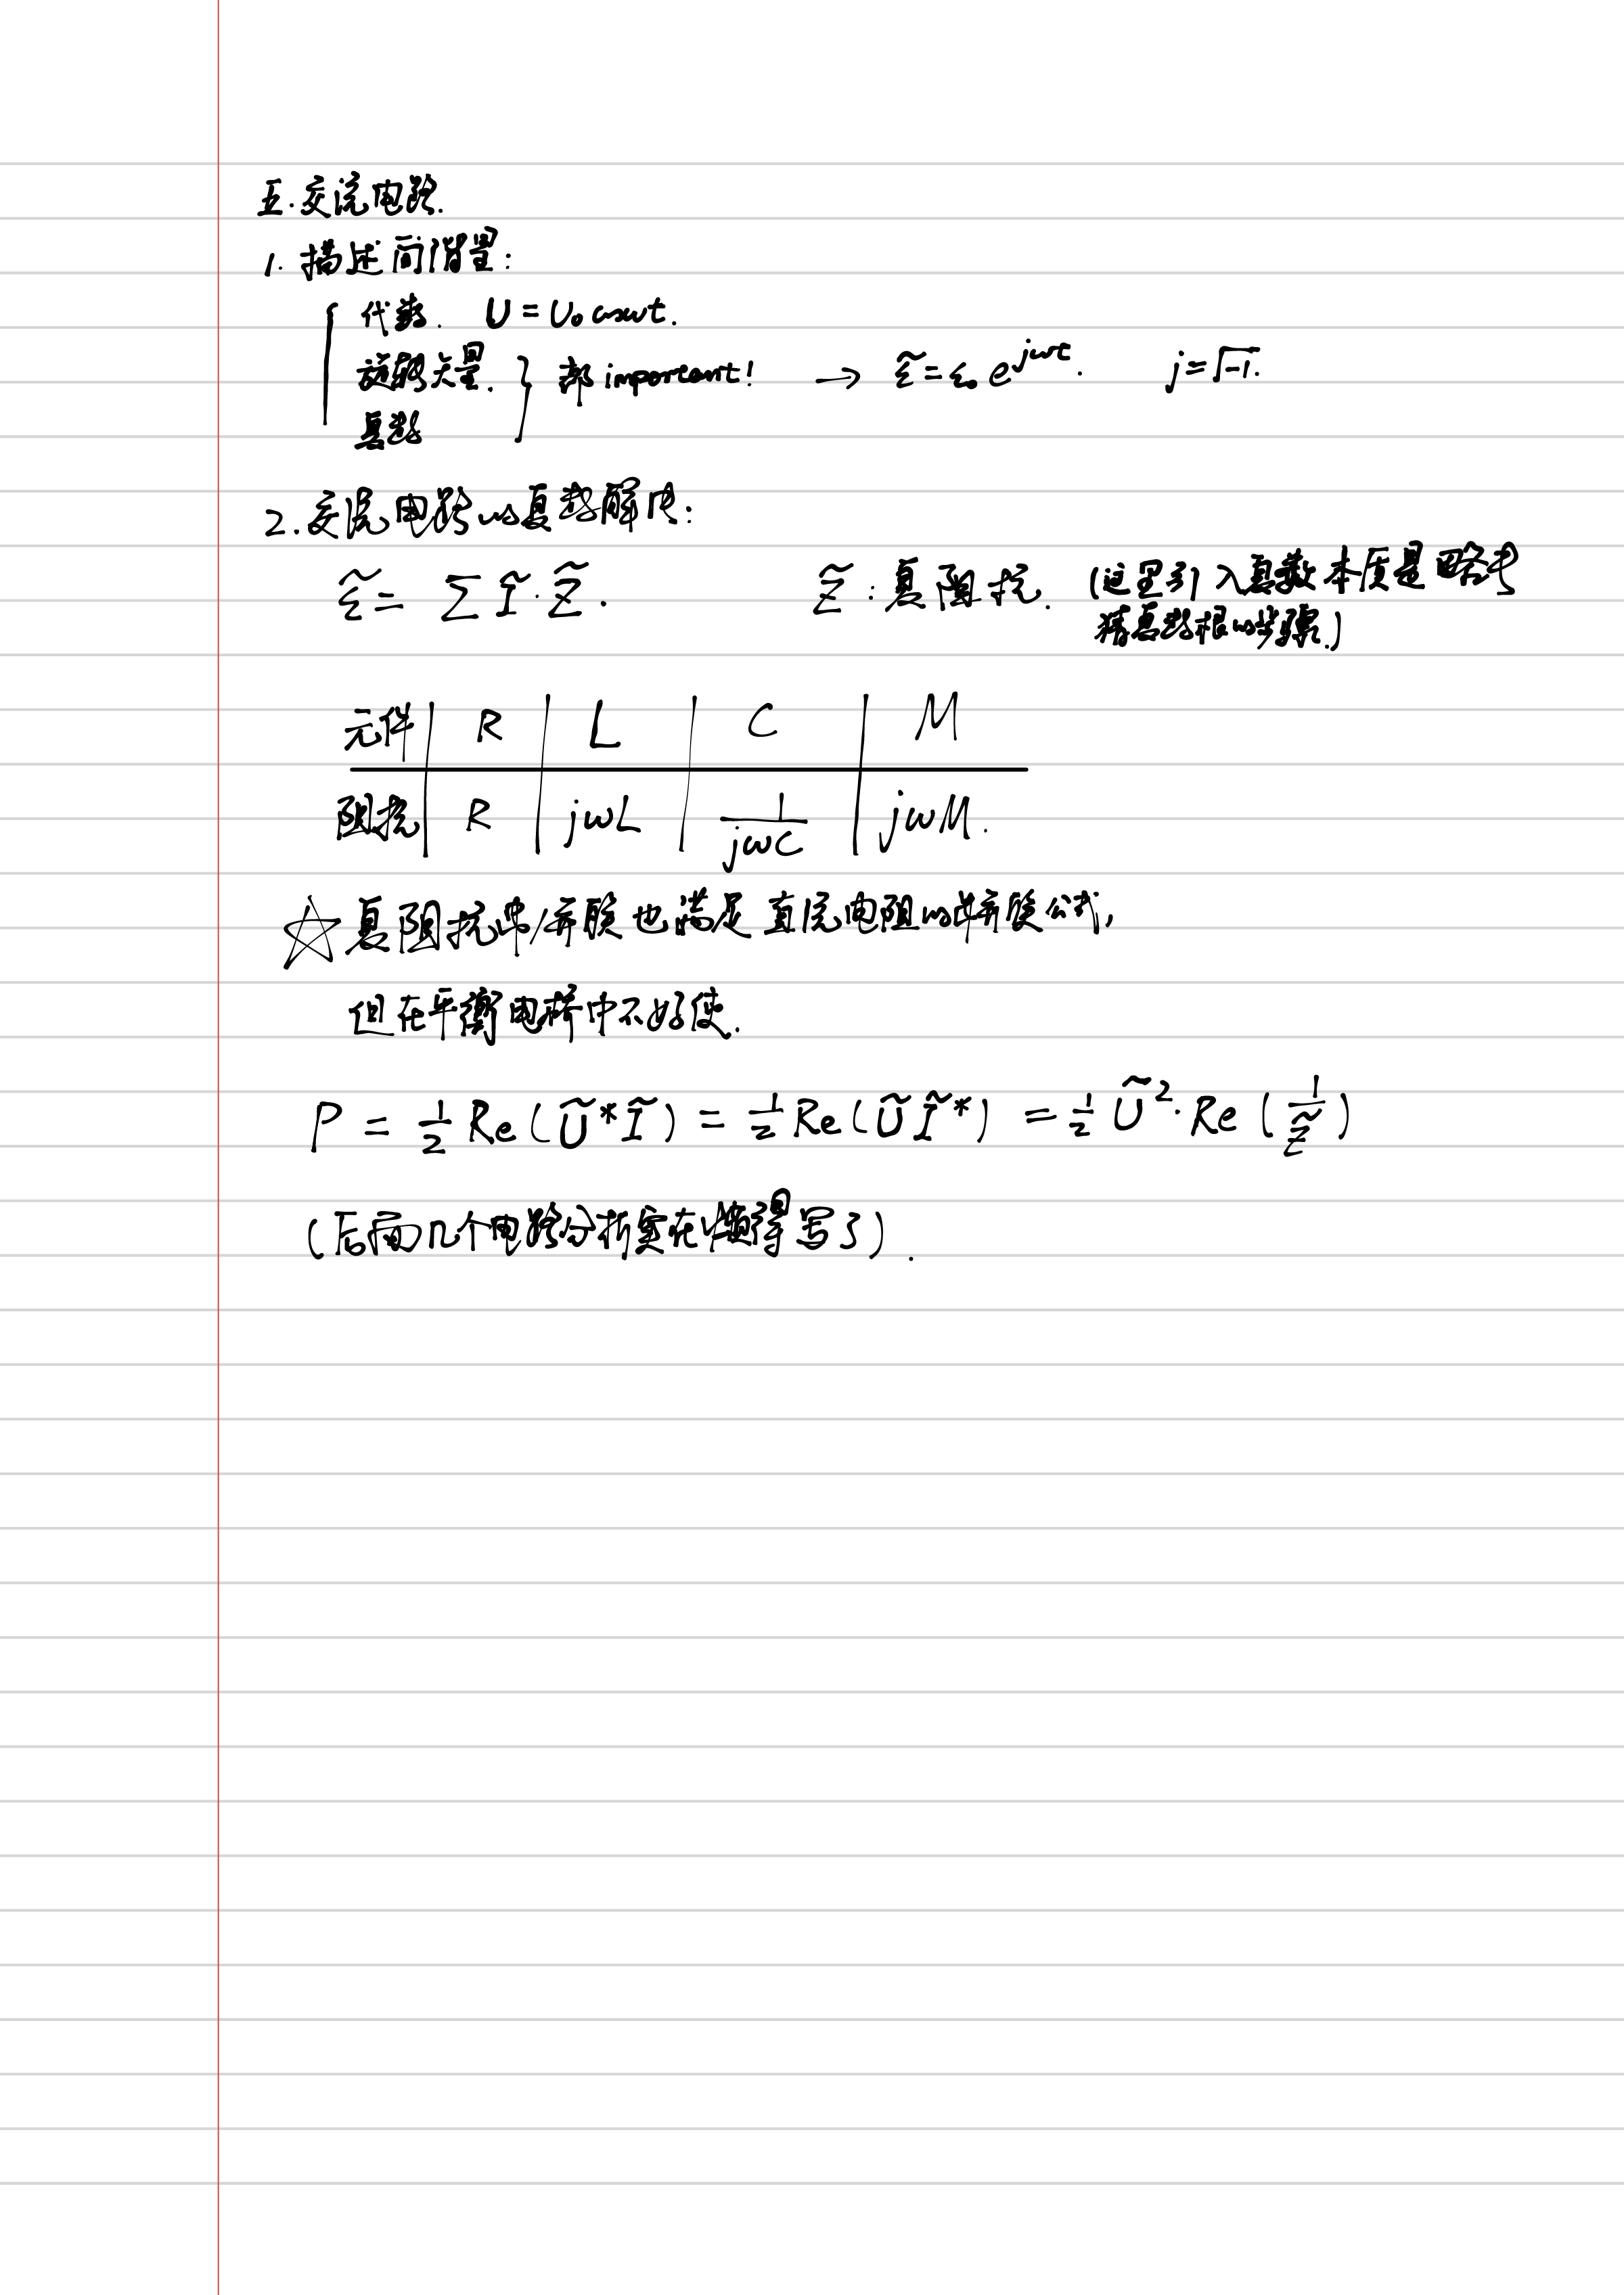 五.交流电路.
1. 描述简谐量:
代数. U = U₀ cosωt.
旋转矢量. } 都 important! → ε̃ = ε₀ e^{jωt}. j = √-1.
复数
2. 交流电路的复数解法:
ε̃ = Σ Ĩ·Z̃. Z̃ : 复阻抗. (这里引入复数本质是略去
猜复数根的步骤.)
元件 | R | L | C | M
阻抗 | R | jωL | 1/(jωC) | jωM.
☆ 复阻抗串/并联也满足直流电阻的串并联公式,
但在平衡电桥中不好使.
P = 1/2 Re(Ũ*Ĩ) = 1/2 Re(ŨĨ*) = 1/2 Ũ²·Re(1/Z̃)
(后面几个电路分析实在懒得写了).